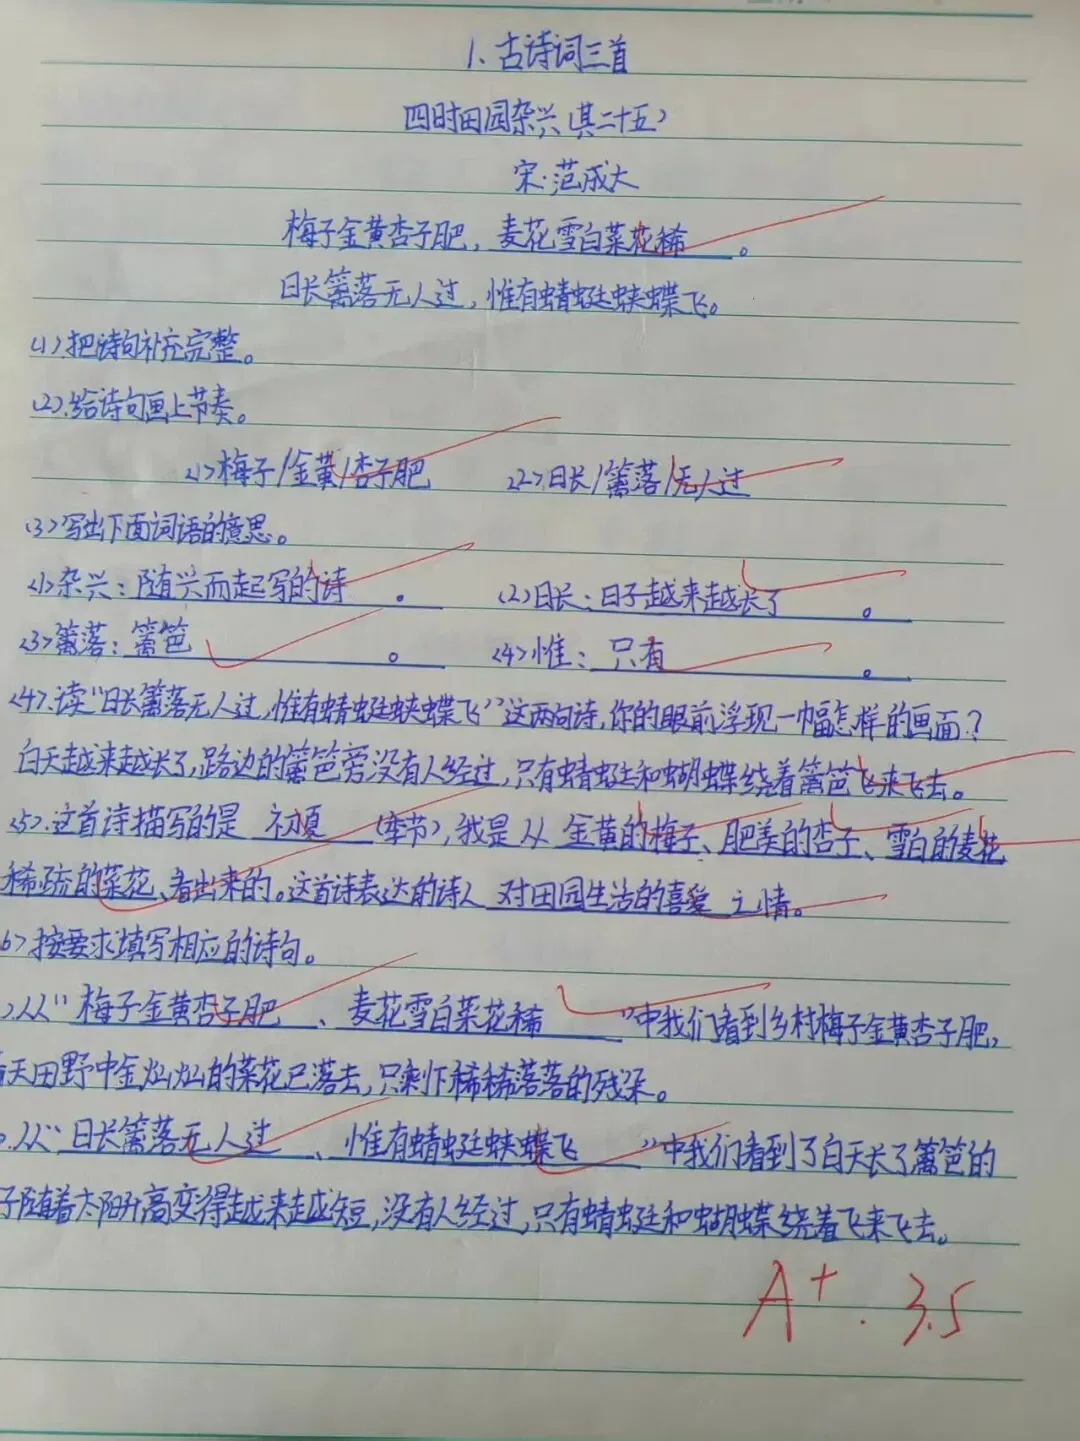 1、古诗词三首
四时田园杂兴(其二十五)
宋·范成大
梅子金黄杏子肥，麦花雪白菜花稀。
日长篱落无人过，惟有蜻蜓蛱蝶飞。
(1)把诗句补充完整。
(2)给诗句画上节奏。
<1>梅子/金黄/杏子肥 <2>日长/篱落/无人过
(3)写出下面词语的意思。
<1>杂兴：随兴而起写的诗。 <2>日长：日子越来越长了。
<3>篱落：篱笆。 <4>惟：只有。
(4)读“日长篱落无人过，惟有蜻蜓蛱蝶飞”这两句诗，你的眼前浮现一幅怎样的画面？
白天越来越长了，路边的篱笆旁没有人经过，只有蜻蜓和蝴蝶绕着篱笆飞来飞去。
(5)这首诗描写的是 初夏 (季节)，我是从 金黄的梅子、肥美的杏子、雪白的麦花
稀疏的菜花、看出来的。这首诗表达的诗人 对田园生活的喜爱 之情。
6>按要求填写相应的诗句。
从“梅子金黄杏子肥、麦花雪白菜花稀”中我们看到乡村梅子金黄杏子肥，
天田野中金灿灿的菜花已落去，只剩下稀稀落落的残朵。
从“日长篱落无人过、惟有蜻蜓蛱蝶飞”中我们看到了白天长了篱笆的
子随着太阳升高变得越来越短，没有人经过，只有蜻蜓和蝴蝶绕着飞来飞去。
A+ . 3.5